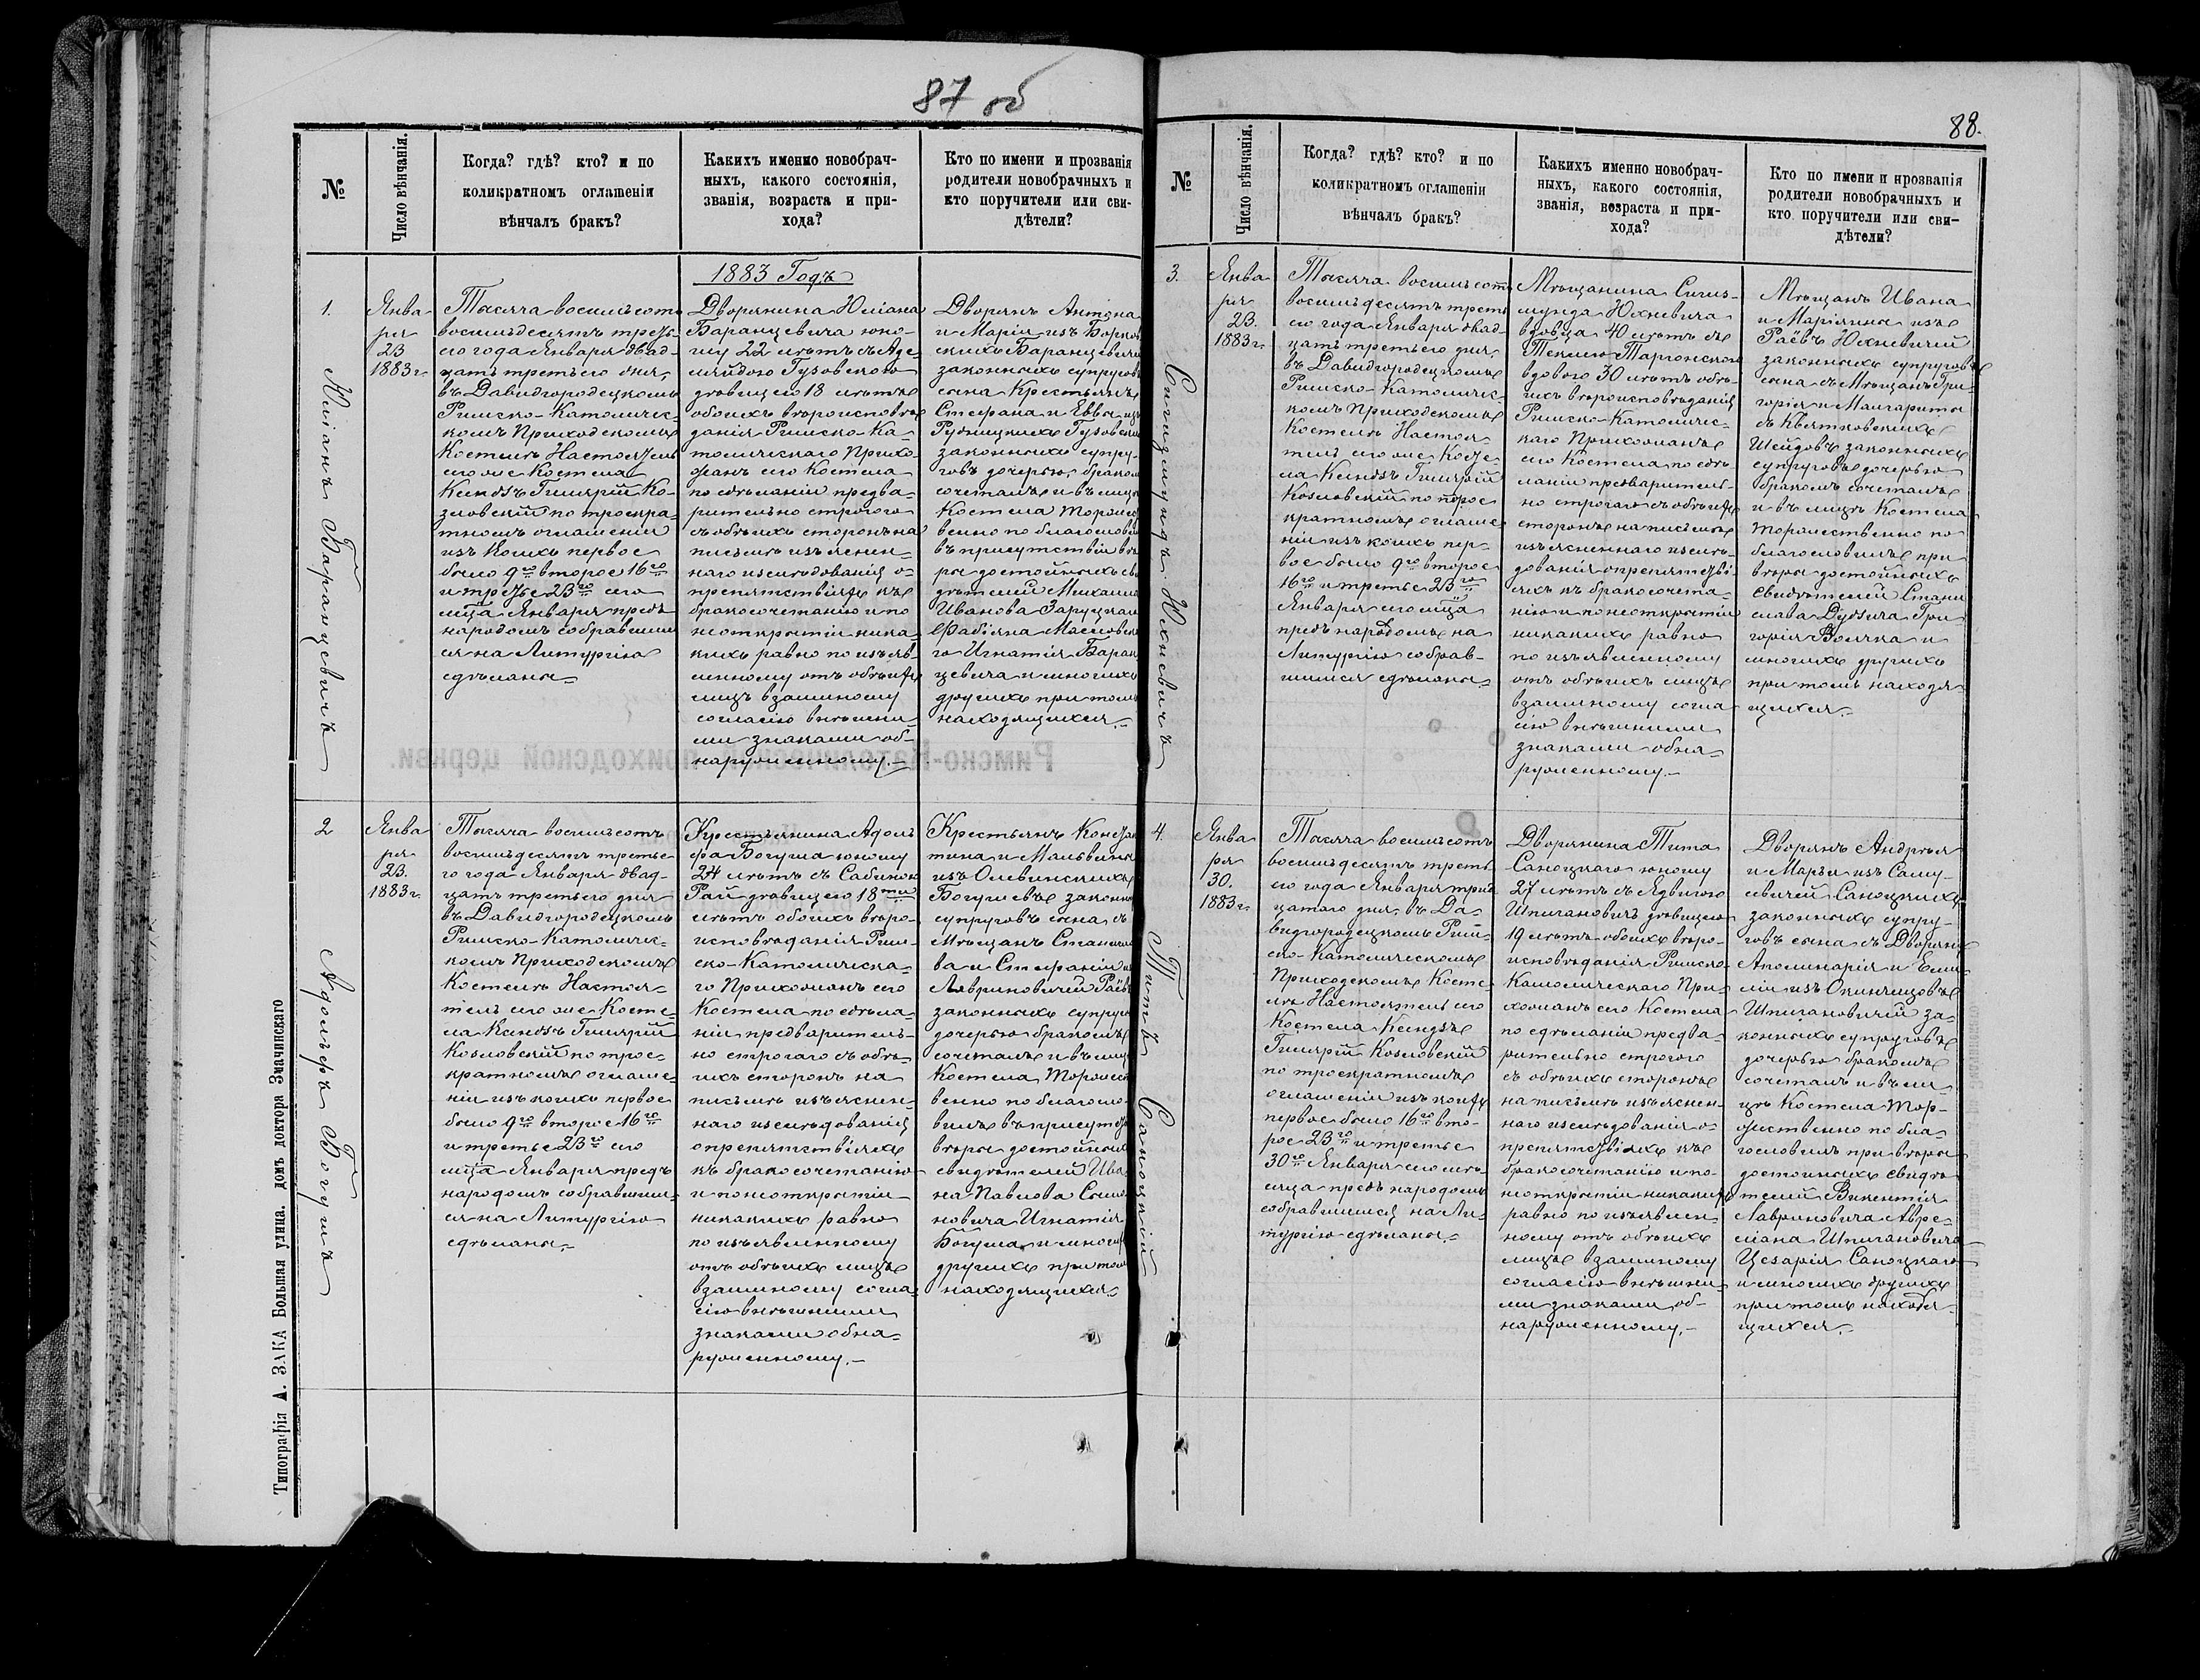 87 об
№
Число вѣнчанія.
Когда? гдѣ? кто? и по
коликратномъ оглашеніи
вѣнчалъ бракъ?
Какихъ именно новобрач-
ныхъ, какого состоянія,
званія, возраста и при-
хода?
Кто по имени и прозванія
родители новобрачныхъ и
кто поручители или сви-
дѣтели?
1883 Годъ
1.
Юліанъ Баранцевичъ
Янва
ря
23
1883 г.
Тысяча восмьсотъ
восмьдесятъ треть-
его года Января двад-
цать третьего дня,
въ Давидгородецкомъ
Римско-Католичес-
комъ Приходскомъ
Костелѣ Настоятель
его же Костела
Ксендзъ Гилярій Ко-
зловскій по троекра-
тномъ оглашеніи
изъ коихъ первое
было 9го второе 16го
и третье 23го сего
мца Января предъ
народомъ собравшим
ся на Литургію
сдѣланы.
Дворянина Юліана
Баранцевича юно-
шу 22 лѣтъ съ Аде-
лайдою Гузовскою
дѣвицею 18 лѣтъ
обоихъ вѣроисповѣ
данія Римско-Ка-
толическаго Прихо-
жанъ его Костела
по сдѣланіи предва-
рительно строгого
съ обѣихъ сторонъ на
письмѣ изъяснен-
наго изслѣдованія о
препятствіяхъ къ
бракосочетанію и по
неоткрытіи ника-
кихъ равно по изъяв-
ленному отъ обѣихъ
лицъ взаимному
согласію внѣшни-
ми знаками об-
наруженному.
Дворянъ Антона
и Маріи изъ
Баранцевичей
законныхъ супруговъ
сына Крестьянъ
Стефана и Еввы изъ
Рудницкихъ Гузовскихъ
законныхъ супру-
говъ дочерью, бракомъ
сочеталъ и въ лицѣ
Костела торжест
венно по благословилъ
въ присутствіи вѣ
ры достойныхъ сви
дѣтелей Михаила
Иванова Заруцкаго
Фабіяна Масловска
го Игнатія Баран
цевича и многихъ
другихъ при томъ
находящихся.
2
Адольфъ Богушъ
Янва
ря
23.
1883 г.
Тысяча восмьсотъ
восмьдесятъ третье
го года Января двад-
цать третьего дня
въ Давидгородецкомъ
Римско-Католичес-
комъ Приходскомъ
Костелѣ Настоя-
тель его же Косте-
ла Ксендзъ Гилярій
Козловскій по трое-
кратномъ оглаше-
ніи изъ коихъ первое
было 9го второе 16го
и третье 23го сего
мца Января предъ
народомъ собравшим-
ся на Литургію
сдѣланы.
Крестьянина Адоль
фа Богуша юношу
24 лѣтъ съ Сабиною
Рай дѣвицею 18ти
лѣтъ обоихъ вѣро-
исповѣданія Рим-
ско-Католическа-
го Прихожанъ его
Костела по сдѣла-
ніи предваритель-
но строгаго съ обѣ-
ихъ сторонъ на
письмѣ изъяснен-
наго изслѣдованія
о препятствіяхъ
къ бракосочетанію
и по неоткрытіи
никакихъ равно
по изъявленному
отъ обѣихъ лицъ
взаимному согла-
сію внѣшними
знаками обна-
руженному.
Крестьянъ Констан
тина и Мальвины
изъ Олевинскихъ
Богушевъ законныхъ
супруговъ сына, съ
Мѣщанъ Станисла
ва и Стефаніи изъ
Лавриновичей Раёвъ
законныхъ супругъ
дочерью бракомъ
сочеталъ и въ лицѣ
Костела торжест
венно по благосло-
вилъ въ присутст
вѣры достойныхъ
свидѣтелей Ива
на Павлова Симо
новича Игнатія
Богуша и многихъ
другихъ при томъ
находящихся.
Типографія А. ЗАКА Большая улица. домъ доктора Змачинскаго
88.
№
Число вѣнчанія.
Когда? гдѣ? кто? и по
коликратномъ оглашеніи
вѣнчалъ бракъ?
Какихъ именно новобрач-
ныхъ, какого состоянія,
званія, возраста и при-
хода?
Кто по имени и прозванія
родители новобрачныхъ и
кто поручители или сви-
дѣтели?
3.
Сигизмундъ Юхневичъ
Янва
ря
23.
1883 г.
Тысяча восмьсотъ
восмьдесятъ треть
его года Января двад-
цать третьего дня,
въ Давидгородецкомъ
Римско-Католичес-
комъ Приходскомъ
Костелѣ Настоя-
тель его же Косте-
ла Ксендзъ Гилярій
Козловскій по трое
кратномъ оглаше
ніи изъ коихъ пер-
вое было 9го второе
16го и третье 23го
Января сего мца
предъ народомъ на
Литургію собрав-
шимся сдѣланы.
Мѣщанина Сигиз-
мунда Юхневича
вдовца 40 лѣтъ съ
Теклею Таргонскою
вдовою 30 лѣтъ обѣ-
ихъ вѣроисповѣданія
Римско-Католичес-
каго Прихожанъ
его Костела по сдѣ-
ланіи предваритель-
но строгаго съ обѣихъ
сторонъ на письмѣ
изъясненнаго изслѣ-
дованія о препятстві-
яхъ къ бракосочета-
нію и по неоткрытіи
никакихъ равно
по изъявленному
отъ обѣихъ лицъ
взаимному согла
сію внѣшними
знаками обна-
руженному.
Мѣщанъ Ивана
и Маріянны изъ
Раёвъ Юхневичей
законныхъ супруговъ
сына съ Мѣщанъ Гри-
горія и Маргариты
съ Квятковскихъ
Шейдовъ законныхъ
супруговъ дочерью
бракомъ сочеталъ
и въ лицѣ Костела
торжественно по
благословилъ при
вѣры достойныхъ
свидѣтелей Стани
слава Дудзича Гри
горія Волчка и
многихъ другихъ
при томъ находя-
щихся.
4.
Титъ Саноцкій
Янва
ря
30.
1883 г.
Тысяча восмьсотъ
восмьдесятъ треть
его года Января трид
цатаго дня, въ Да-
видгородецкомъ Рим-
ско-Католическомъ
Приходскомъ Косте-
лѣ Настоятель его
Костела Ксендзъ
Гилярій Козловскій
по троекратномъ
оглашеніи изъ коихъ
первое было 16го вто-
рое 23го и третье
30го Января сего мѣ-
сяца предъ народомъ
собравшимся на Ли-
тургію сдѣланы.
Дворянина Тита
Саноцкаго юношу
27 лѣтъ съ Ядвигою
Шпигановичъ дѣвицею
19 лѣтъ обоихъ вѣро-
исповѣданія Римско-
Католическаго При-
хожанъ его Костела
по сдѣланіи предва-
рительно строгого
съ обѣихъ сторонъ
на письмѣ изъяснен-
наго изслѣдованія о
препятствіяхъ къ
бракосочетанію и по-
неоткрытіи никакихъ
равно по изъявлен-
ному отъ обѣихъ
лицъ взаимному
согласію внѣшни-
ми знаками об-
наруженному.
Дворянъ Андрея
и Марѣи изъ Саму-
севичей Саноцкихъ
законныхъ супру-
говъ сына съ Дворянъ
Аполинарія и Еми-
ліи изъ Окинчицовъ
Шпигановичей за-
конныхъ супруговъ
дочерью бракомъ
сочеталъ и въ ли-
цѣ Костела тор-
жественно по бла-
гословилъ при вѣры
достойныхъ свидѣ
телей Викентія
Лавриновича Авре-
ліана Шпигановича
Цезарія Саноцкаго
и многихъ другихъ
при томъ находя-
щихся.